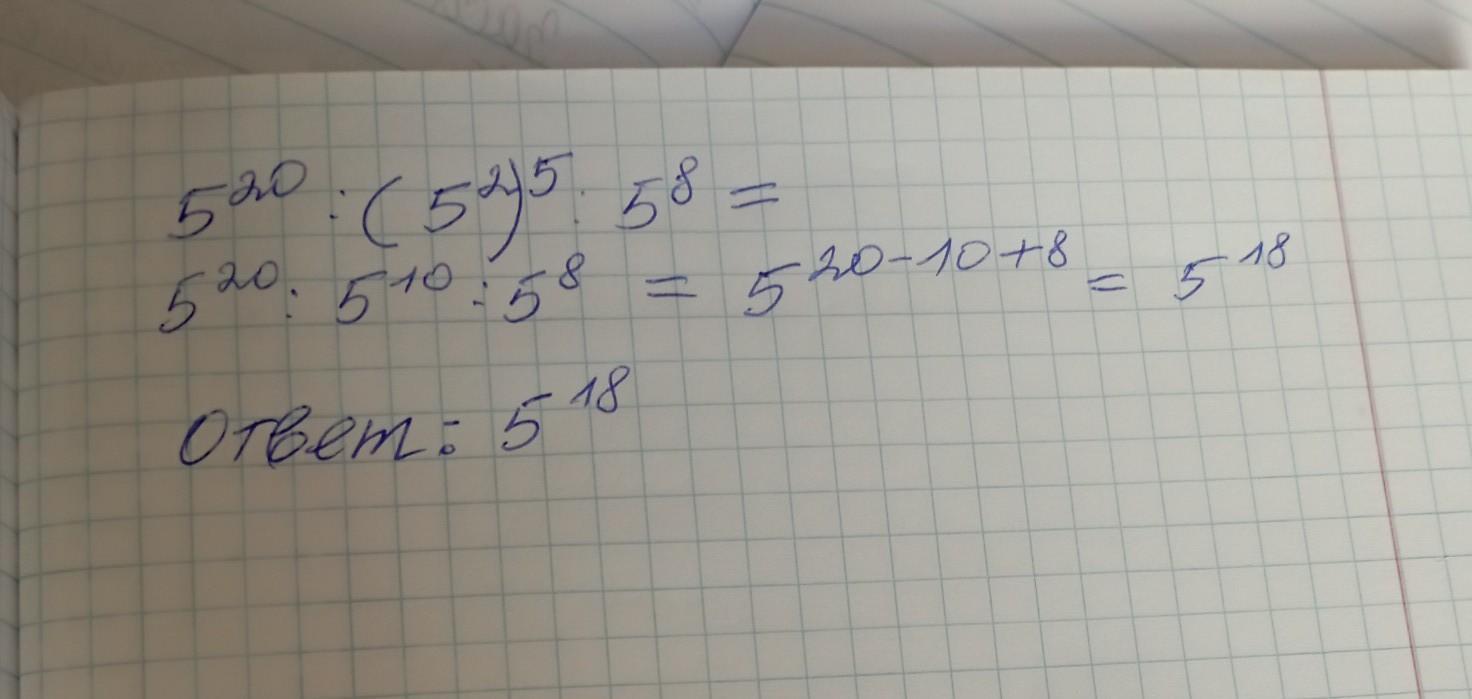 5²⁰ : (5²)⁵ : 5⁸ =
5²⁰ : 5¹⁰ : 5⁸ = 5²⁰⁻¹⁰⁺⁸ = 5¹⁸
Ответ: 5¹⁸